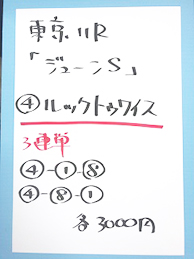 東京11R
「ジューンS」
④ルックトゥワイス
3連単
④-①-⑧
④-⑧-①
各3000円